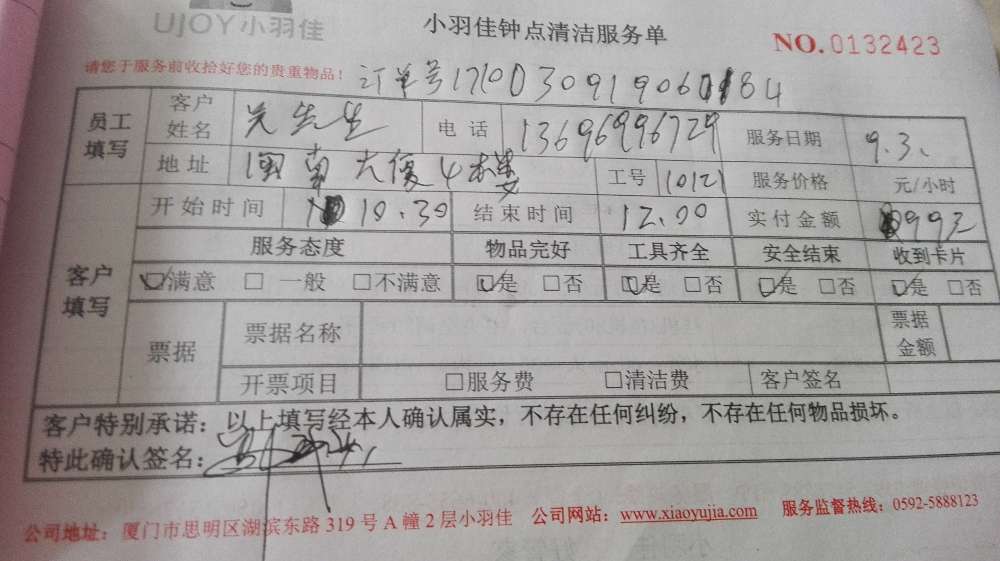 UJOY小羽佳
小羽佳钟点清洁服务单
NO.0132423
请您于服务前收拾好您的贵重物品！
订单号
员工填写
客户姓名 先生 电话 13696996729 服务日期 9.3.
地址 闽南大厦4楼 工号 10121 服务价格 元/小时
开始时间 10.30 结束时间 12.00 实付金额
客户填写
服务态度 物品完好 工具齐全 安全结束 收到卡片
☑满意 □一般 □不满意 ☑是 □否 ☑是 □否 ☑是 □否 ☑是 □否
票据 票据名称 票据金额
开票项目 □服务费 □清洁费 客户签名
客户特别承诺：以上填写经本人确认属实，不存在任何纠纷，不存在任何物品损坏。
特此确认签名：
公司地址：厦门市思明区湖滨东路319号A幢2层小羽佳 公司网站：www.xiaoyujia.com 服务监督热线：0592-5888123